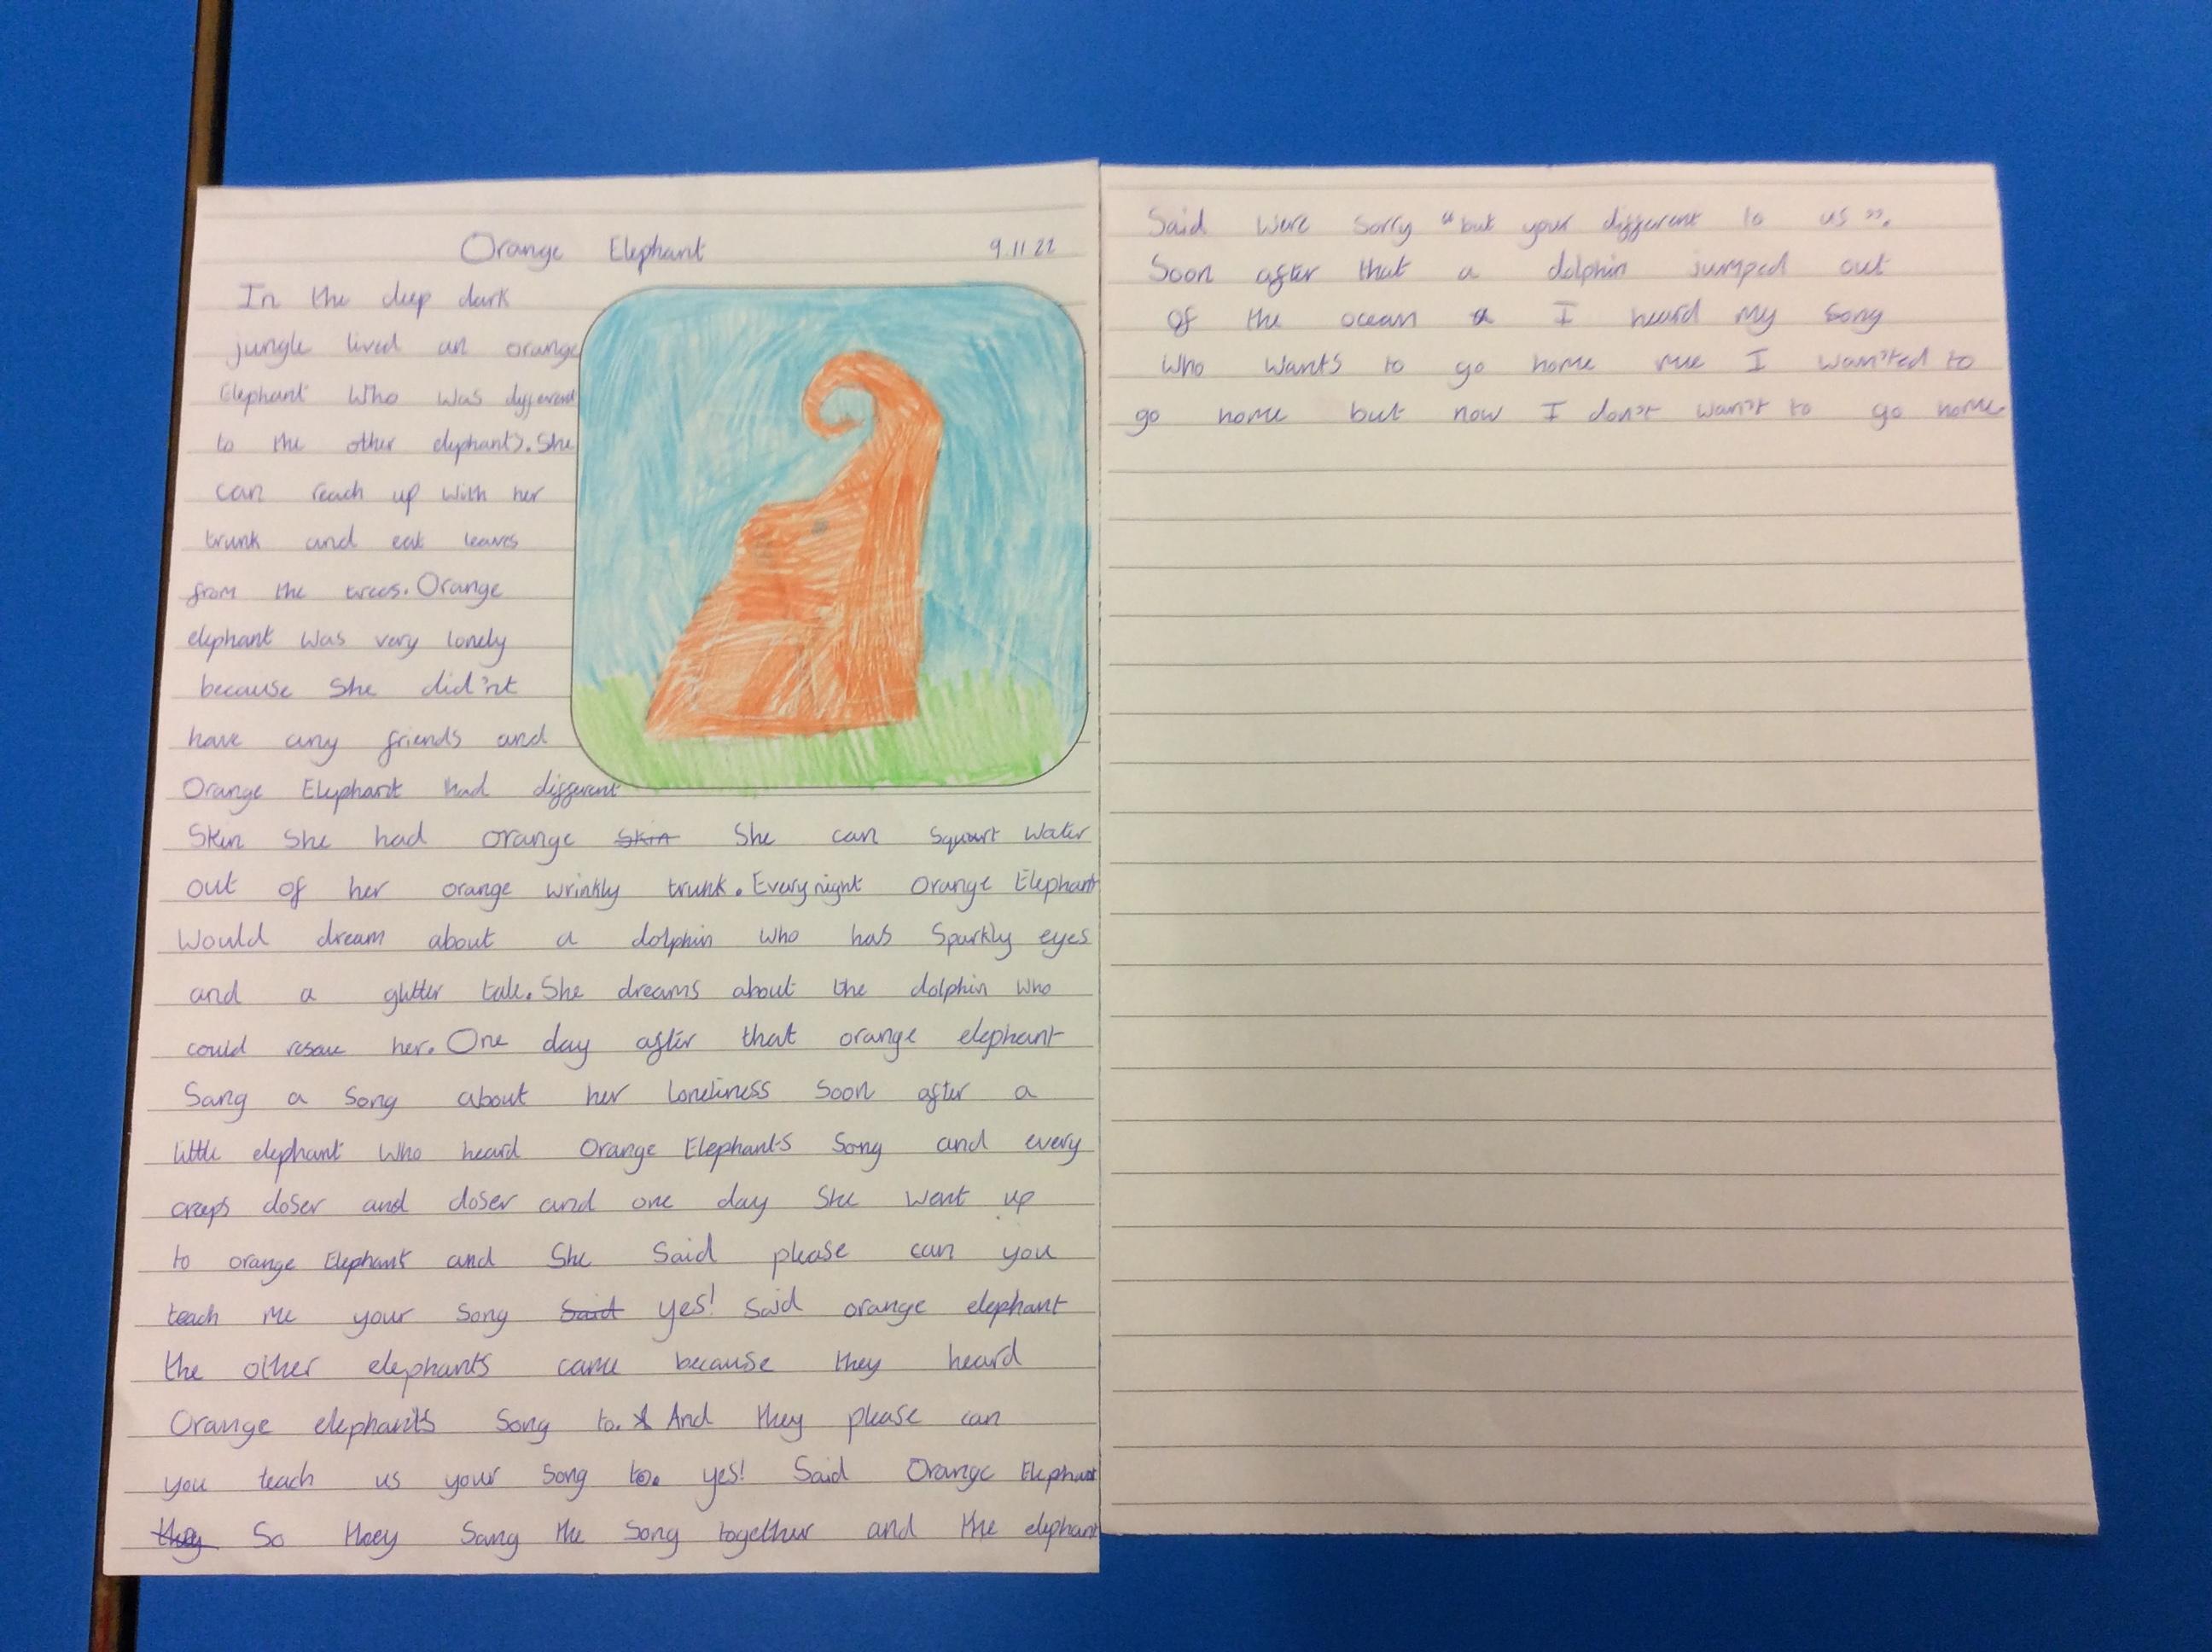 Orange Elephant 9.11.22
In the deep dark
jungle lived an orange
Elephant Who was different
to the other elephants. She
can reach up with her
trunk and eat leaves
from the trees. Orange
elephant was very lonely
because She did'nt
have any friends and
Orange Elephant had different
Skin She had orange Skin She can Squart Water
out of her orange wrinkly trunk. Every night Orange Elephant
Would dream about a dolphin who has Sparkly eyes
and a glitter tale. She dreams about the dolphin who
could resaue her. One day after that orange elephant
Sang a Song about her Loneliness Soon after a
little elephant Who heard Orange Elephants Song and every
creeps closer and closer and one day She Went up
to orange Elephant and She Said please can you
teach me your Song Said yes! Said orange elephant
the other elephants came because they heard
Orange elephants Song to. And they please can
you teach us your Song to. yes! Said Orange Elephant
they So they Sang the Song together and the elephant
Said Were Sorry "but your different to us".
Soon after that a dolphin jumped out
of the ocean I heard my Song
Who Wants to go home me I wan'ted to
go home but now I don't wan't to go home